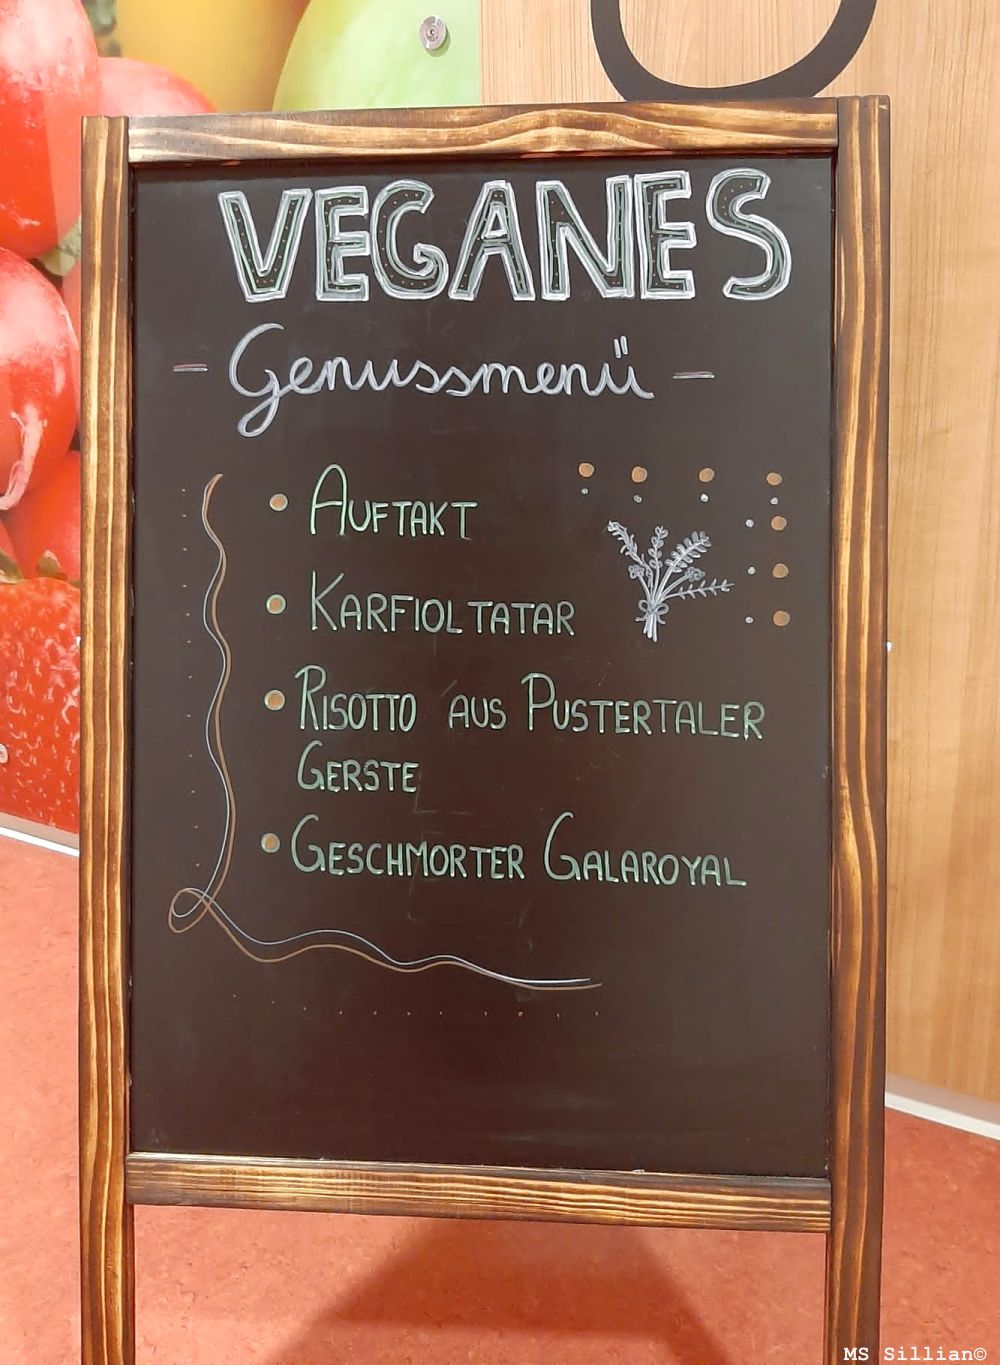 VEGANES
- Genussmenü -
• AUFTAKT
• KARFIOLTATAR
• RISOTTO AUS PUSTERTALER
GERSTE
• GESCHMORTER GALAROYAL
MS Sillian©